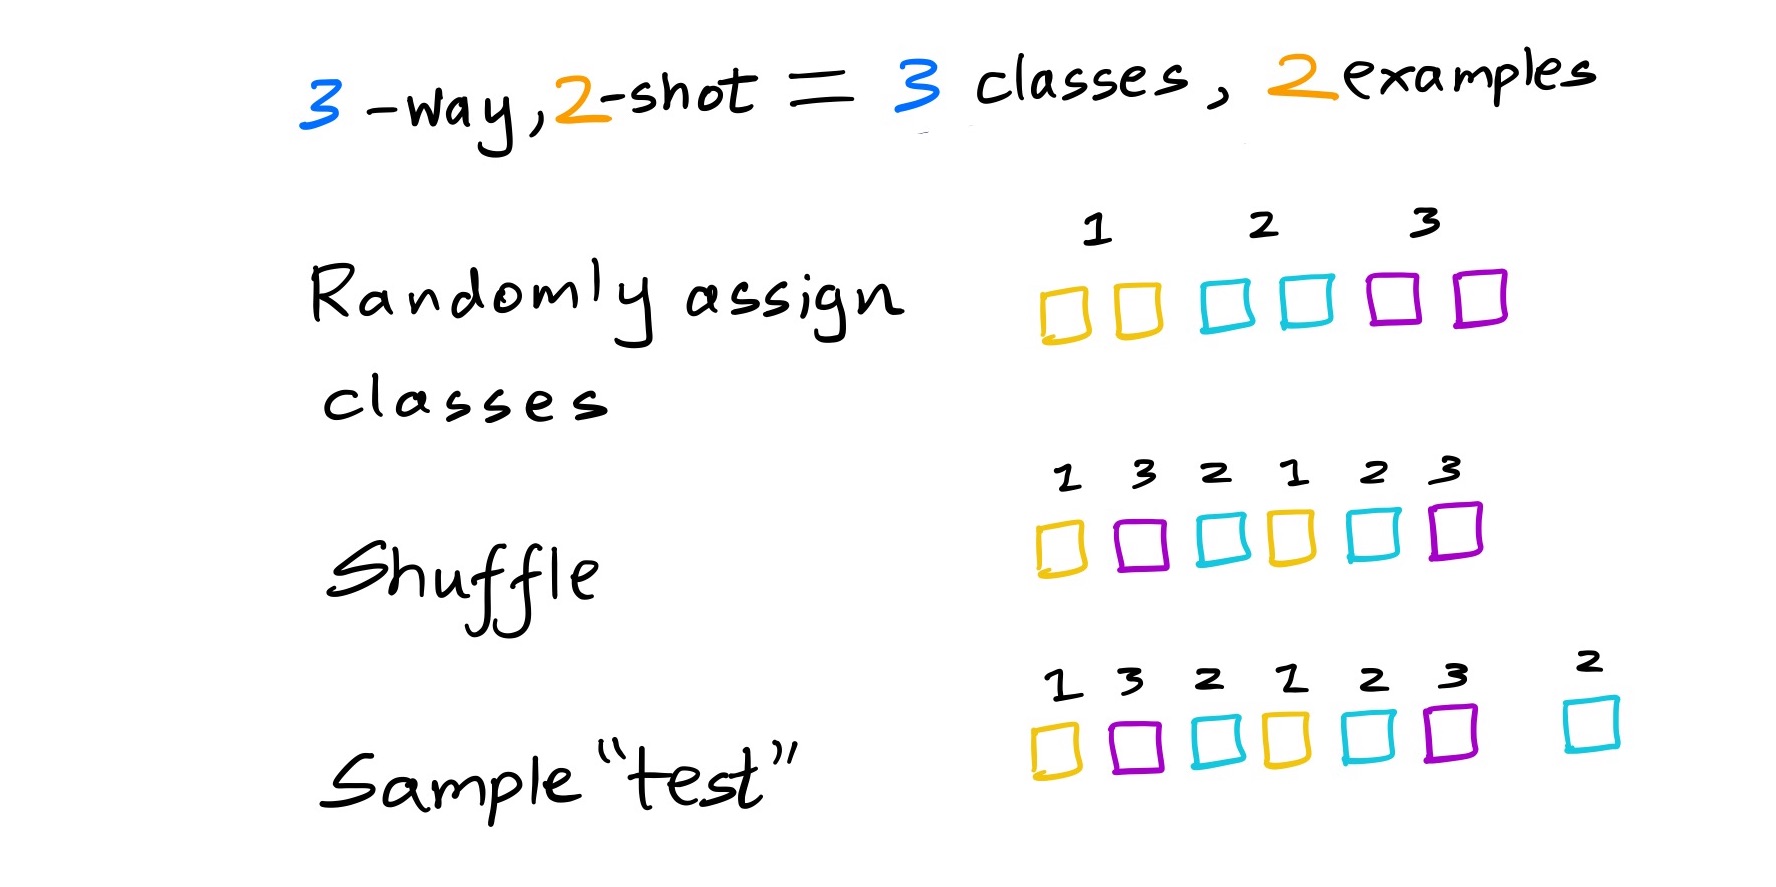 3-way, 2-shot = 3 classes, 2 examples
1 2 3
Randomly assign
classes
1 3 2 1 2 3
Shuffle
1 3 2 1 2 3 2
Sample "test"